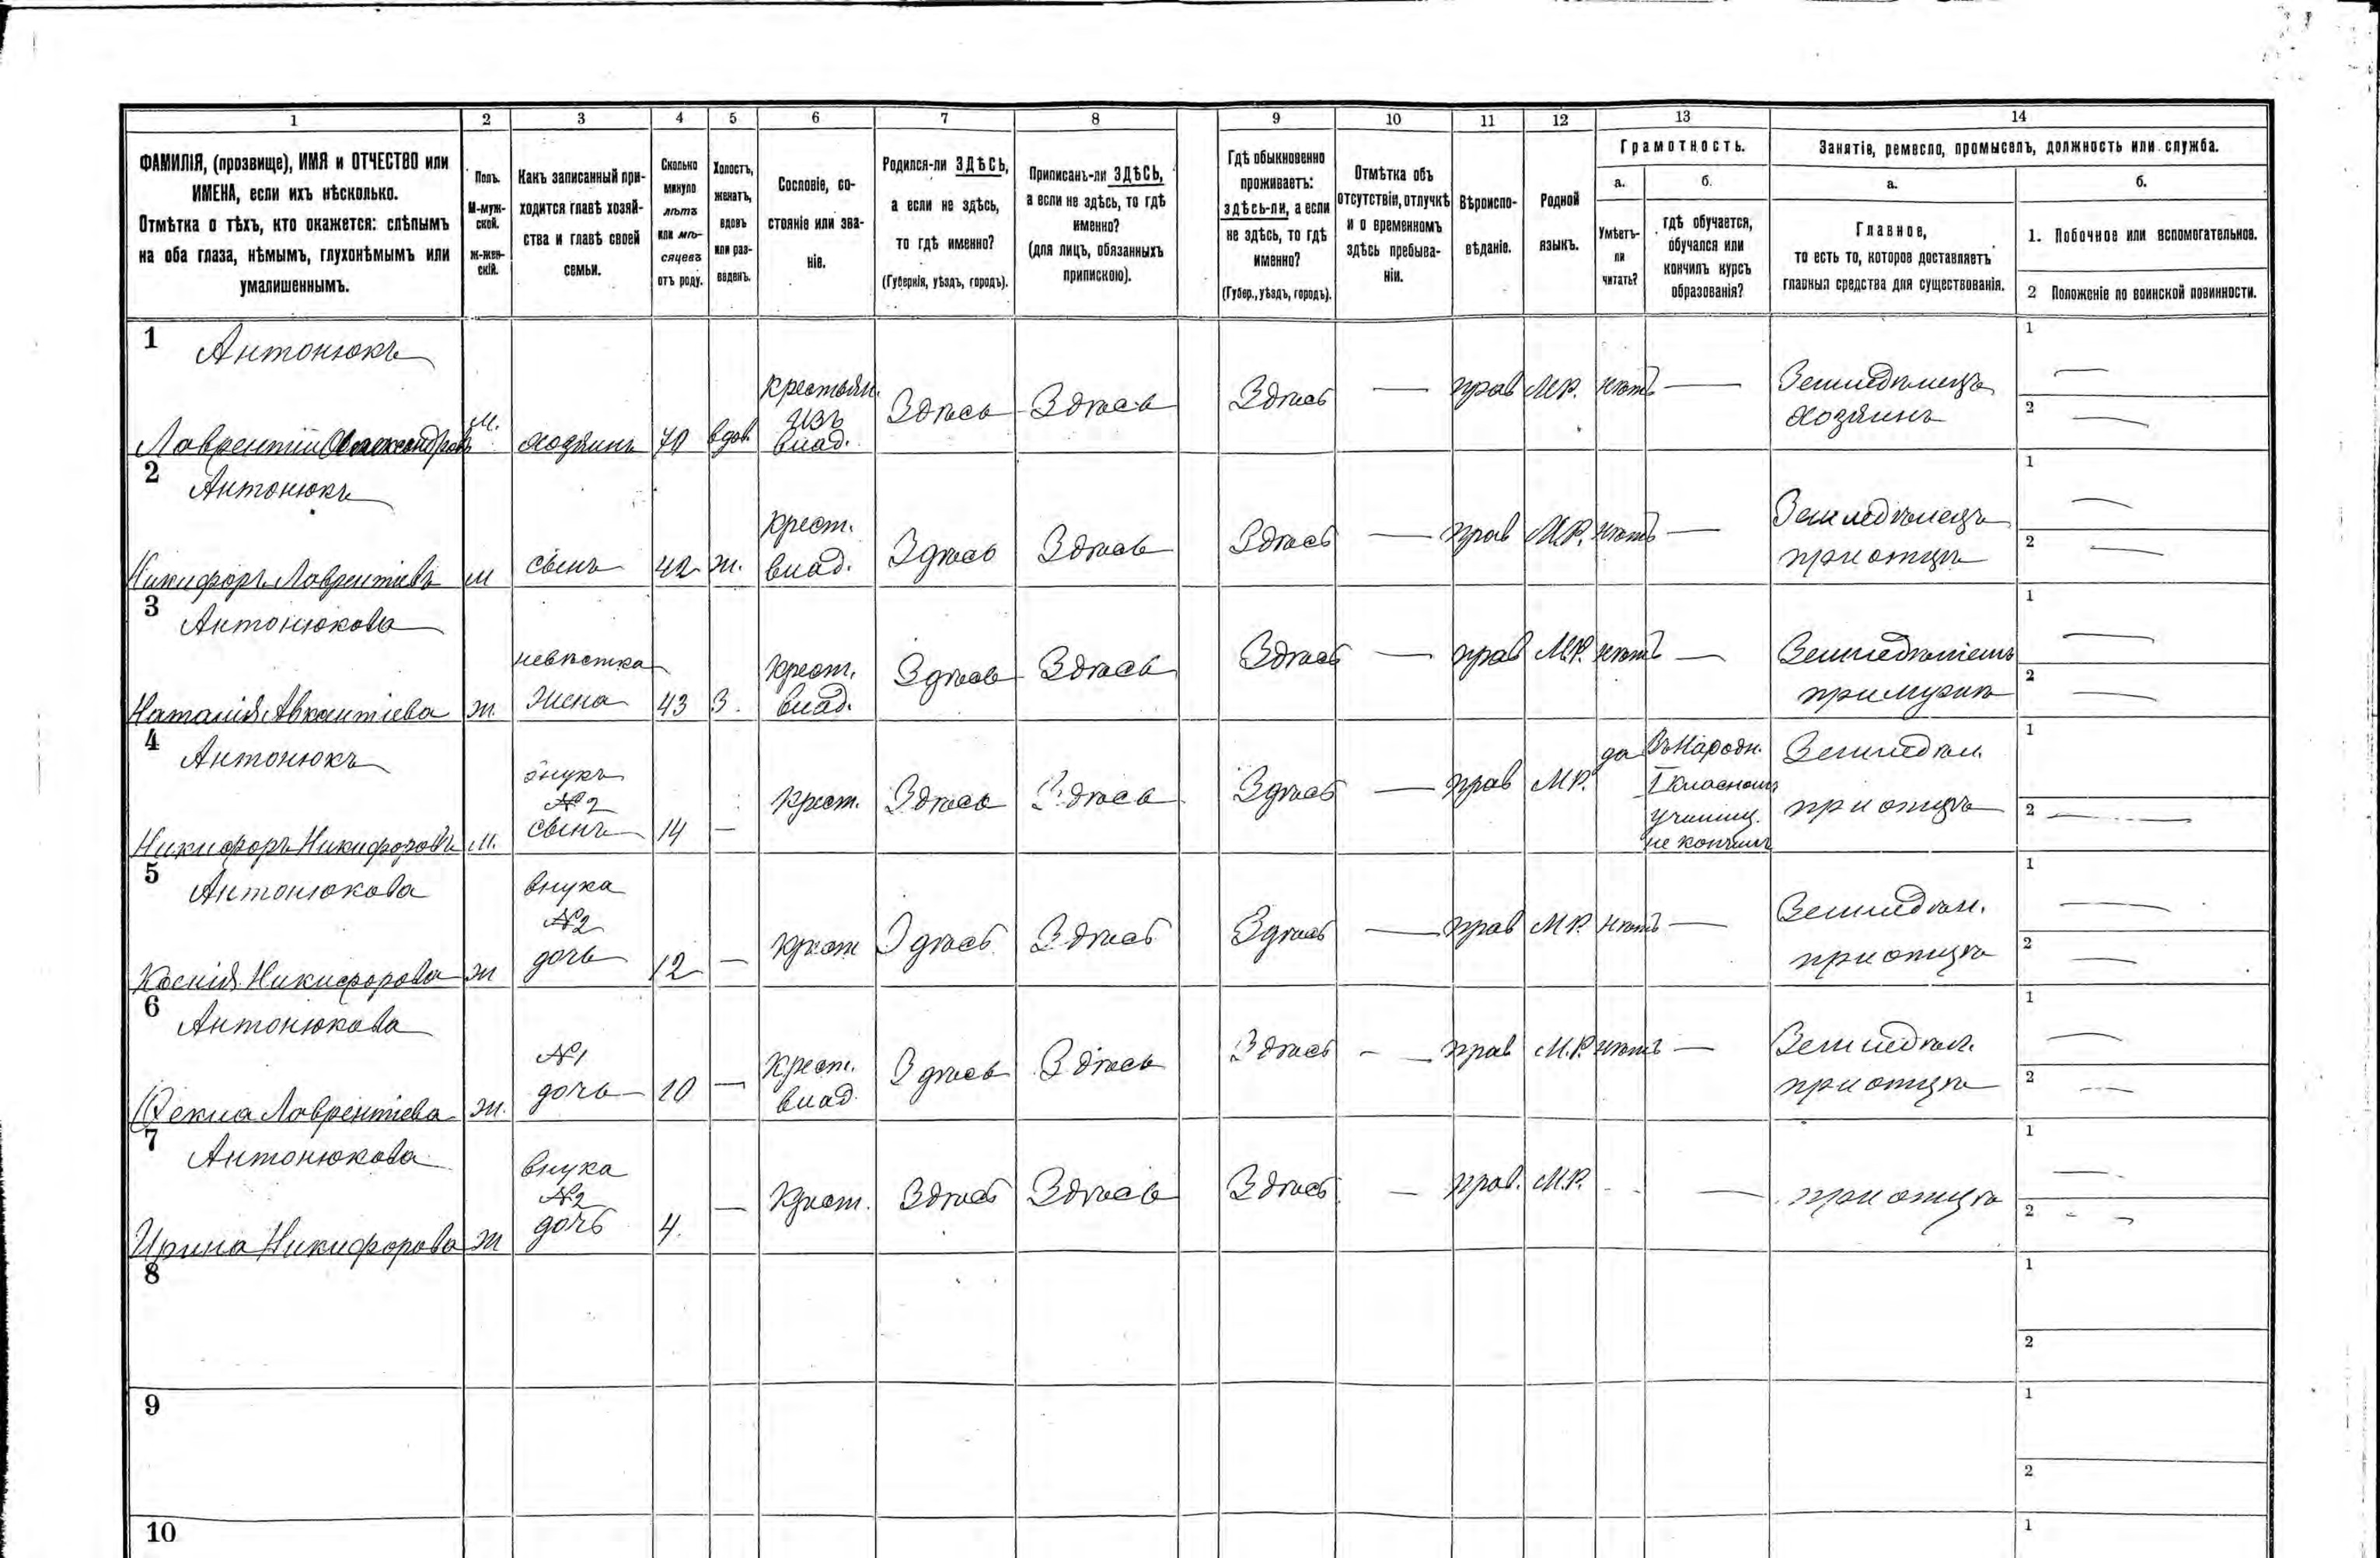 1 2 3 4 5 6 7 8 9 10 11 12 13 14
ФАМИЛІЯ, (прозвище), ИМЯ и ОТЧЕСТВО или
ИМЕНА, если ихъ нѣсколько.
Отмѣтка о тѣхъ, кто окажется: слѣпымъ
на оба глаза, нѣмымъ, глухонѣмымъ или
умалишеннымъ.
Полъ.
М-муж-
ской.
Ж-жен-
скій.
Какъ записанный при-
ходится главѣ хозяй-
ства и главѣ своей
семьи.
Сколько
минуло
лѣтъ
или мѣ-
сяцевъ
отъ роду.
Холостъ,
женатъ,
вдовъ
или раз-
веденъ.
Сословіе, со-
стояніе или зва-
ніе.
Родился-ли ЗДѢСЬ,
а если не здѣсь,
то гдѣ именно?
(Губернія, уѣздъ, городъ).
Приписанъ-ли ЗДѢСЬ,
а если не здѣсь, то гдѣ
именно?
(для лицъ, обязанныхъ
припискою).
Гдѣ обыкновенно
проживаетъ:
здѣсь-ли, а если
не здѣсь, то гдѣ
именно?
(Губер., уѣздъ, городъ).
Отмѣтка объ
отсутствіи, отлучкѣ
и о временномъ
здѣсь пребыва-
ніи.
Вѣроиспо-
вѣданіе.
Родной
языкъ.
Грамотность.
а.
Умѣетъ-
ли
читать?
б.
гдѣ обучается,
обучался или
кончилъ курсъ
образованія?
Занятіе, ремесло, промыселъ, должность или служба.
а.
Главное,
то есть то, которое доставляетъ
главныя средства для существованія.
б.
1. Побочное или вспомогательное.
2 Положеніе по воинской повинности.
1 Антонюкъ
Лаврентій Александровъ м. хозяинъ 70 вдов.
Крестьян.
изъ
влад.
Здѣсь Здѣсь Здѣсь — прав М.Р. нѣтъ —
Земледѣлецъ
хозяинъ
1 —
2 —
2 Антонюкъ
Никифоръ Лаврентіевъ м сынъ 42 ж.
Крест.
влад.
Здѣсь Здѣсь Здѣсь — прав М.Р. нѣтъ —
Земледѣлецъ
при отцѣ
1 —
2 —
3 Антонюкова
Наталія Авксентіева ж.
невѣстка
жена
43 З.
Крест.
влад.
Здѣсь Здѣсь Здѣсь — прав М.Р. нѣтъ —
при мужѣ
1 —
2 —
4 Антонюкъ
Никифоръ Никифоровъ м.
внукъ
№2
сынъ
14 —
Крест. Здѣсь Здѣсь Здѣсь — прав М.Р. да
Въ Народн.
1 класномъ
училищ.
не кончилъ
Земледѣл.
при отцѣ
1
2 —
5 Антонюкова
Ксенія Никифорова ж
внука
№2
дочь
12 —
Крест Здѣсь Здѣсь Здѣсь — прав М.Р. нѣтъ —
Земледѣл.
при отцѣ
1 —
2 —
6 Антонюкова
Фекла Лаврентіева ж.
№1
дочь
10 —
Крест.
влад.
Здѣсь Здѣсь Здѣсь — прав М.Р. нѣтъ —
Земледѣл.
при отцѣ
1 —
2 —
7 Антонюкова
Ирина Никифорова ж
внука
№2
дочь
4. —
Крест. Здѣсь Здѣсь Здѣсь — прав. М.Р. —
при отцѣ
1 —
2 —
8
1
2
9
1
2
10
1